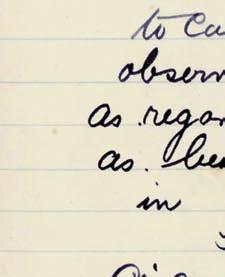 to Ca
observ
as regar
as be
in